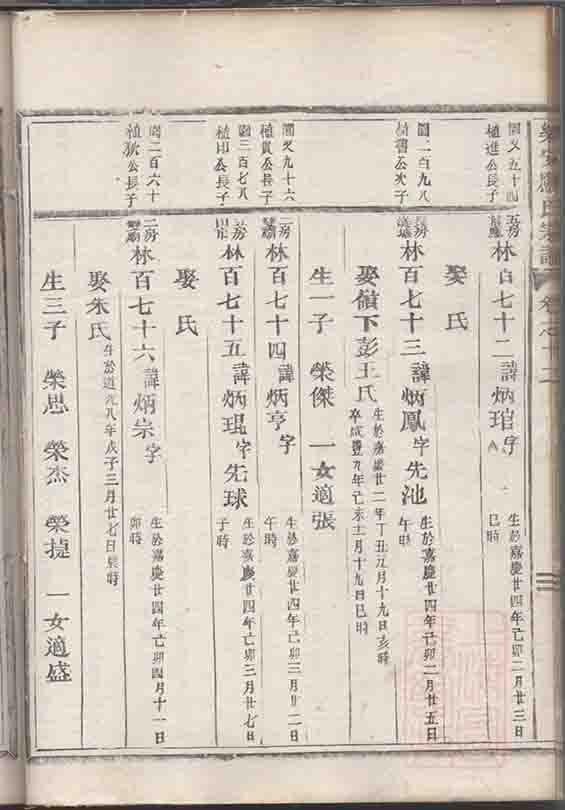 卷之十二
圖又五十四
植進公長子
五房
林百七十二諱炳琯字
生於嘉慶廿四年己卯二月廿三日
巳時
娶氏
圖二百九八
植書公次子
長房
林百七十三諱炳鳳字先池
生於嘉慶廿四年己卯二月廿五日
午時
娶嶺下彭王氏
生於嘉慶廿二年丁丑元月十九日亥時
卒咸豐九年己未十一月十九日巳時
生一子 榮傑 一女適張
圖又九十六
植貴公長子
二房
林百七十四諱炳亨字
生於嘉慶廿四年己卯三月廿二日
午時
圖三百七八
植印公長子
房
林百七十五諱炳琨字先球
生於嘉慶廿四年己卯三月廿七日
子時
娶氏
圖二百六十
植狄公長子
三房
林百七十六諱炳宗字
生於嘉慶廿四年己卯四月十一日
卯時
娶朱氏
生於道光八年戊子三月廿七日辰時
生三子 榮思 榮杰 榮提 一女適盛